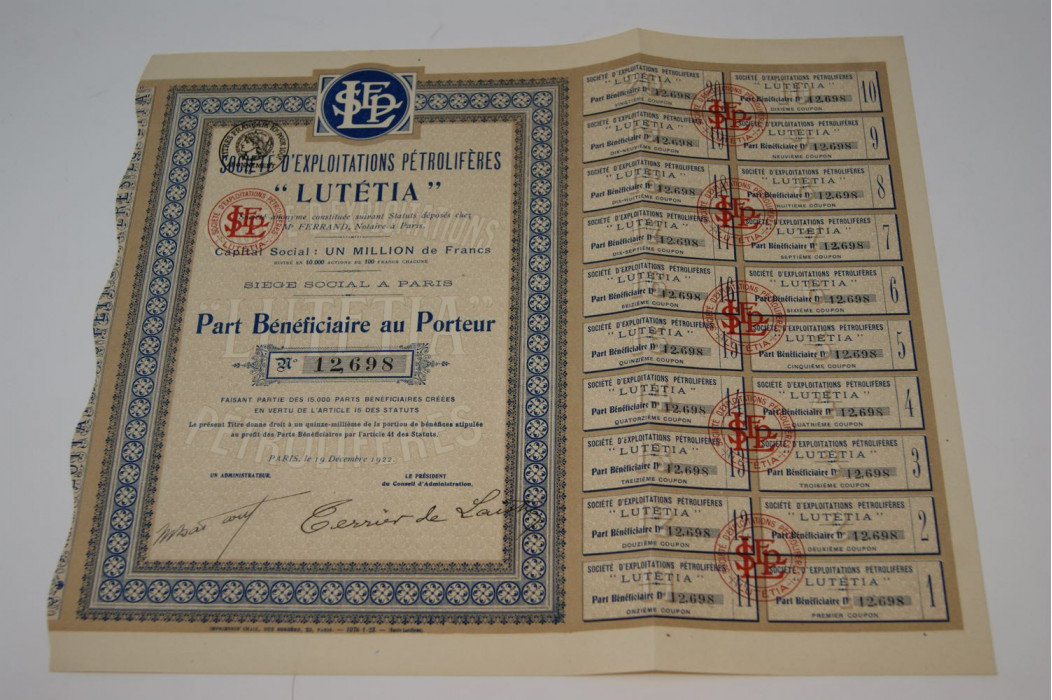 SEPL
SOCIÉTÉ D'EXPLOITATIONS PÉTROLIFÈRES
"LUTÉTIA"
anonyme constituée suivant Statuts déposés chez
Me FERRAND, Notaire à Paris
Capital Social : UN MILLION de Francs
DIVISÉ EN 10.000 ACTIONS DE 100 FRANCS CHACUNE
SIEGE SOCIAL A PARIS
Part Bénéficiaire au Porteur
No 12,698
FAISANT PARTIE DES 15.000 PARTS BÉNÉFICIAIRES CRÉÉES
EN VERTU DE L'ARTICLE 15 DES STATUTS
Le présent Titre donne droit à un quinze-millième de la portion de bénéfices stipulée
au profit des Parts Bénéficiaires par l'article 41 des Statuts.
PARIS, le 19 Décembre 1922
UN ADMINISTRATEUR,
LE PRÉSIDENT
du Conseil d'Administration,
Terrier de
SOCIÉTÉ D'EXPLOITATIONS PÉTROLIFÈRES
"LUTÉTIA"
Part Bénéficiaire No 12.698
VINGTIÈME COUPON
SOCIÉTÉ D'EXPLOITATIONS PÉTROLIFÈRES
"LUTÉTIA"
Part Bénéficiaire No 12.698
DIXIÈME COUPON
10
SOCIÉTÉ D'EXPLOITATIONS PÉTROLIFÈRES
"LUTÉTIA"
Part Bénéficiaire No 12.698
DIX-NEUVIÈME COUPON
SOCIÉTÉ D'EXPLOITATIONS PÉTROLIFÈRES
"LUTÉTIA"
Part Bénéficiaire No 12.698
NEUVIÈME COUPON
9
SOCIÉTÉ D'EXPLOITATIONS PÉTROLIFÈRES
"LUTÉTIA"
Part Bénéficiaire No 12.698
DIX-HUITIÈME COUPON
SOCIÉTÉ D'EXPLOITATIONS PÉTROLIFÈRES
"LUTÉTIA"
Part Bénéficiaire No 12.698
HUITIÈME COUPON
8
SOCIÉTÉ D'EXPLOITATIONS PÉTROLIFÈRES
"LUTÉTIA"
Part Bénéficiaire No 12.698
DIX-SEPTIÈME COUPON
SOCIÉTÉ D'EXPLOITATIONS PÉTROLIFÈRES
"LUTÉTIA"
Part Bénéficiaire No 12.698
SEPTIÈME COUPON
7
SOCIÉTÉ D'EXPLOITATIONS PÉTROLIFÈRES
"LUTÉTIA"
Part Bénéficiaire No 12.698
SEIZIÈME COUPON
SOCIÉTÉ D'EXPLOITATIONS PÉTROLIFÈRES
"LUTÉTIA"
Part Bénéficiaire No 12.698
SIXIÈME COUPON
6
SOCIÉTÉ D'EXPLOITATIONS PÉTROLIFÈRES
"LUTÉTIA"
Part Bénéficiaire No 12.698
QUINZIÈME COUPON
15
SOCIÉTÉ D'EXPLOITATIONS PÉTROLIFÈRES
"LUTÉTIA"
Part Bénéficiaire No 12.698
CINQUIÈME COUPON
5
SOCIÉTÉ D'EXPLOITATIONS PÉTROLIFÈRES
"LUTÉTIA"
Part Bénéficiaire No 12.698
QUATORZIÈME COUPON
14
SOCIÉTÉ D'EXPLOITATIONS PÉTROLIFÈRES
"LUTÉTIA"
Part Bénéficiaire No 12.698
QUATRIÈME COUPON
4
SOCIÉTÉ D'EXPLOITATIONS PÉTROLIFÈRES
"LUTÉTIA"
Part Bénéficiaire No 12.698
TREIZIÈME COUPON
13
SOCIÉTÉ D'EXPLOITATIONS PÉTROLIFÈRES
"LUTÉTIA"
Part Bénéficiaire No 12.698
TROISIÈME COUPON
3
SOCIÉTÉ D'EXPLOITATIONS PÉTROLIFÈRES
"LUTÉTIA"
Part Bénéficiaire No 12.698
DOUZIÈME COUPON
12
SOCIÉTÉ D'EXPLOITATIONS PÉTROLIFÈRES
"LUTÉTIA"
Part Bénéficiaire No 12.698
DEUXIÈME COUPON
2
SOCIÉTÉ D'EXPLOITATIONS PÉTROLIFÈRES
"LUTÉTIA"
Part Bénéficiaire No 12.698
ONZIÈME COUPON
11
SOCIÉTÉ D'EXPLOITATIONS PÉTROLIFÈRES
"LUTÉTIA"
Part Bénéficiaire No 12.698
PREMIER COUPON
1